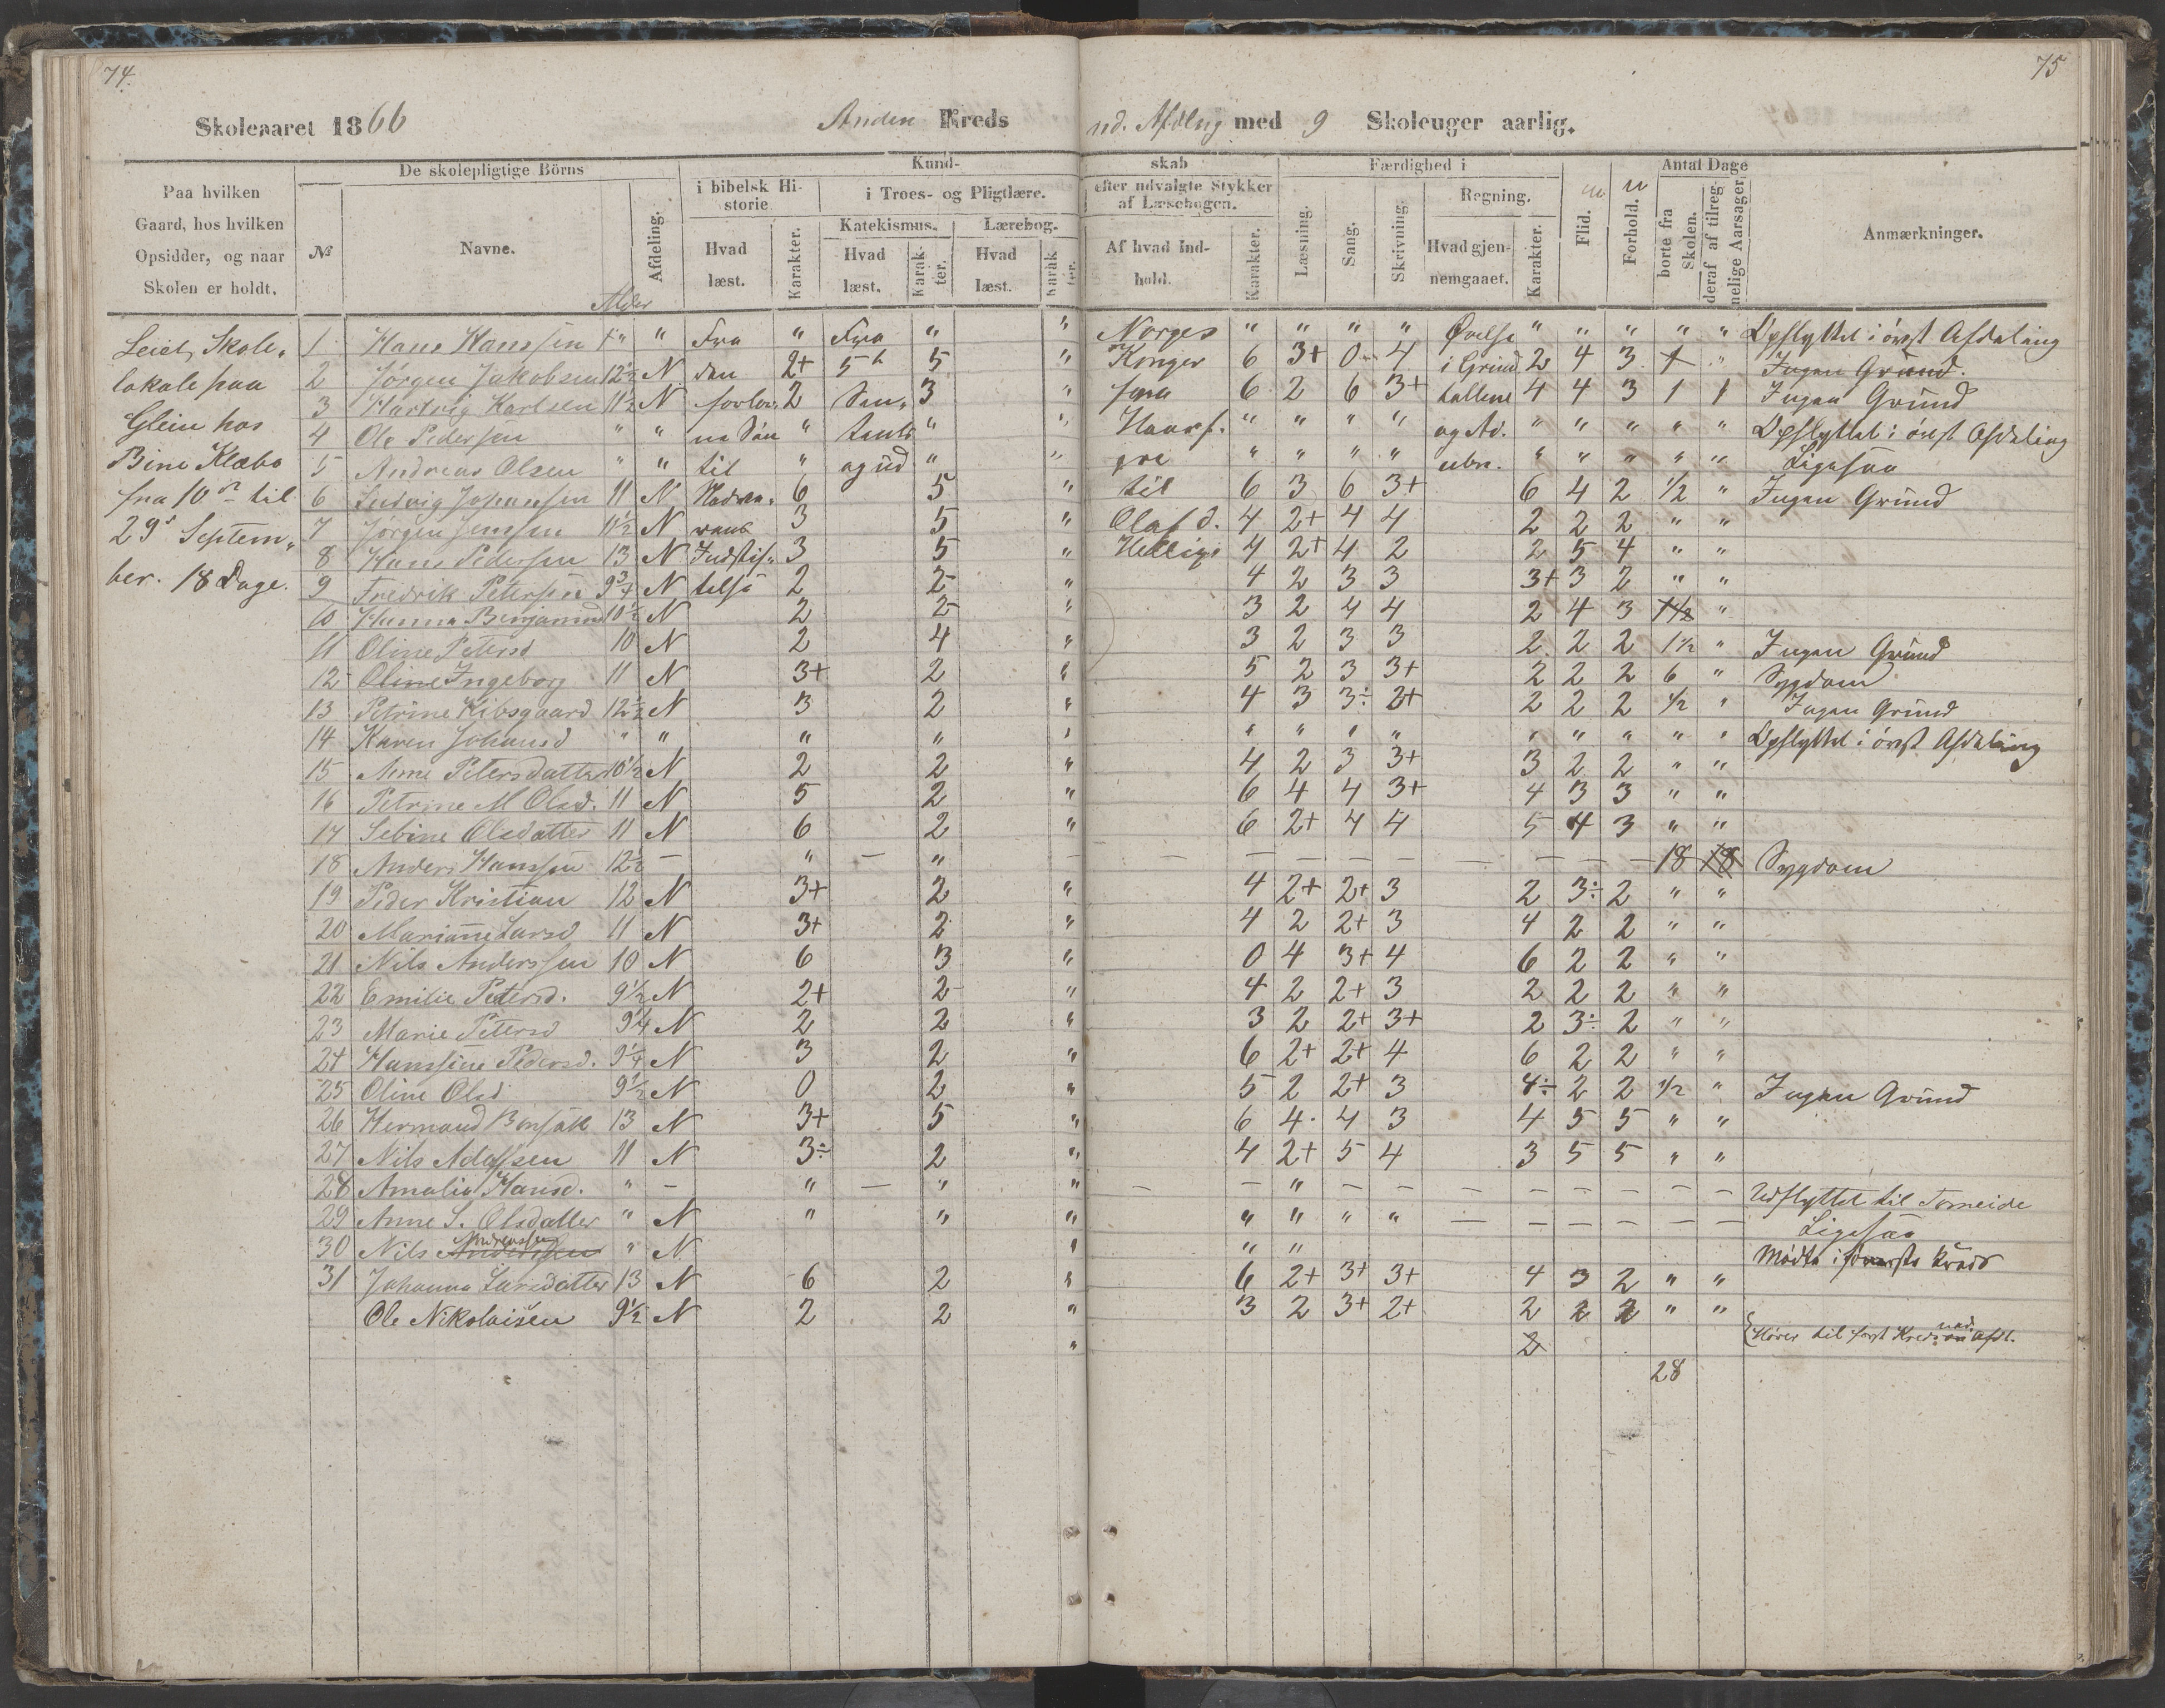 74.
75
Skoleaaret 1866 Anden Kreds nd. Afdlng med 9 Skoleuger aarlig.
Paa hvilken Gaard, hos hvilken Opsidder, og naar Skolen er holdt.
De skolepligtige Börns
№ Navne. Alder Afdeling.
Kund-skab
i bibelsk Historie Hvad læst. Karakter.
i Troes- og Pligtlære.
Katekismus. Hvad læst. Karakter.
Lærebog. Hvad læst. Karakter.
efter udvalgte Stykker af Læsebogen. Af hvad Indhold. Karakter.
Færdighed i
Læsning. Sang. Skrivning.
Regning. Hvad gjennemgaaet. Karakter.
Flid. Forhold.
Antal Dage
borte fra Skolen. deraf af tilregnelige Aarsager.
Anmærkninger.
Leiet Skole„
lokale paa
Glein hos
Bine Klæbo
fra 10de til
29d Septem„
ber. 18 Dage.
1 Hans Hanssen " " Fra " Fra " " Norges " " " " Øvelse " " " " " Opflyttet i øvst Afdeling
2 Jørgen Jakobsen 12½ N den 2+ 5te 5 " Konger 6 3+ 0 4 i Grund 2 4 3 1 " Ingen Grund.
3 Hartvig Karlsen 11½ N forlor. 2 3 " fra 6 2 6 3+ tallene 4 4 3 1 1 Ingen Grund
4 Ole Pederssen " " ne Søn " " " Haarf. " " " " og Ad. " " " " " Opflyttet i øvst Afdeling
5 Andreas Olsen " " til " og ud " " gre " " " " " " " " " Ligesaa
6 Ludvig Johanssen 11 N 6 5 " til 6 3 6 3+ 6 4 2 ½ " Ingen Grund
7 Jørgen Jenssen 11½ N 3 5 " Olaf d. 4 2+ 4 4 2 2 2 " "
8 Hans Pederssen 13 N Indstif„ 3 5 " Hellige 4 2+ 4 2 2 5 4 " "
9 Fredrik Peterssen 9¾ N telse 2 2 " 4 2 3 3 3+ 3 2 " "
10 Hanna Benjamind 10½ N 2 2 " 3 2 4 4 2 4 3 1½ "
11 Oline Petersd 10 N 2 4 " 3 2 3 3 2 2 2 1½ " Ingen Grund
12 Oline Ingeborg 11 N 3+ 2 " 5 2 3 3+ 2 2 2 6 " Sygdom
13 Petrine Kibsgaard 12½ N 3 2 " 4 3 3÷ 2+ 2 2 2 ½ " Ingen Grund
14 Karen Johansd " " " " " " " " " " " " " " Opflyttet i øvst Afdeling
15 Anne Petersdatter 10½ N 2 2 " 4 2 3 3+ 3 2 2 " "
16 Petrine M Olsd. 11 N 5 2 " 6 4 4 3+ 4 3 3 " "
17 Sebine Olsdatter 11 N 6 2 " 6 2+ 4 4 5 4 3 " "
18 Anders Hanssen 12½ — " — " — — — — — — — — — — 18 18 Sygdom
19 Peder Kristian 12 N 3+ 2 " 4 2+ 2+ 3 2 3÷ 2 " "
20 Marianne Larsd 11 N 3+ 2 " 4 2 2+ 3 4 2 2 " "
21 Nils Anderssen 10 N 6 3 " 0 4 3+ 4 6 2 2 " "
22 Emilie Petersd. 9½ N 2+ 2 " 4 2 2+ 3 2 2 2 " "
23 Marie Petersd 9¼ N 2 2 " 3 2 2+ 3+ 2 3÷ 2 " "
24 Hanssine Pedersd. 9¼ N 3 2 " 6 2+ 2+ 4 6 2 2 " "
25 Oline Olsd 9½ N 0 2 " 5 2 2+ 3 4÷ 2 2 ½ " Ingen Grund
26 Hermand Bensak 13 N 3+ 5 " 6 4 4 3 4 5 5 " "
27 Nils Adolfsen 11 N 3÷ 2 " 4 2+ 5 4 3 5 5 " "
28 Amalia Hansd. " — " — " " — — " — — — — — — — — Udflyttet til Tomeide
29 Anne S. Olsdatter " N " " " " " " " — — — — — — Ligesaa
30 Nils Anderssen Andreassen " N " " " Mødte i første Kreds
31 Johanna Larsdatter 13 N 6 2 " 6 2+ 3+ 3+ 4 3 2 " "
Ole Nikolaisen 9½ N 2 2 " 3 2 3+ 2+ 2 2 2 " "
" 2 Hører til først Kreds ned. Afdl.
28